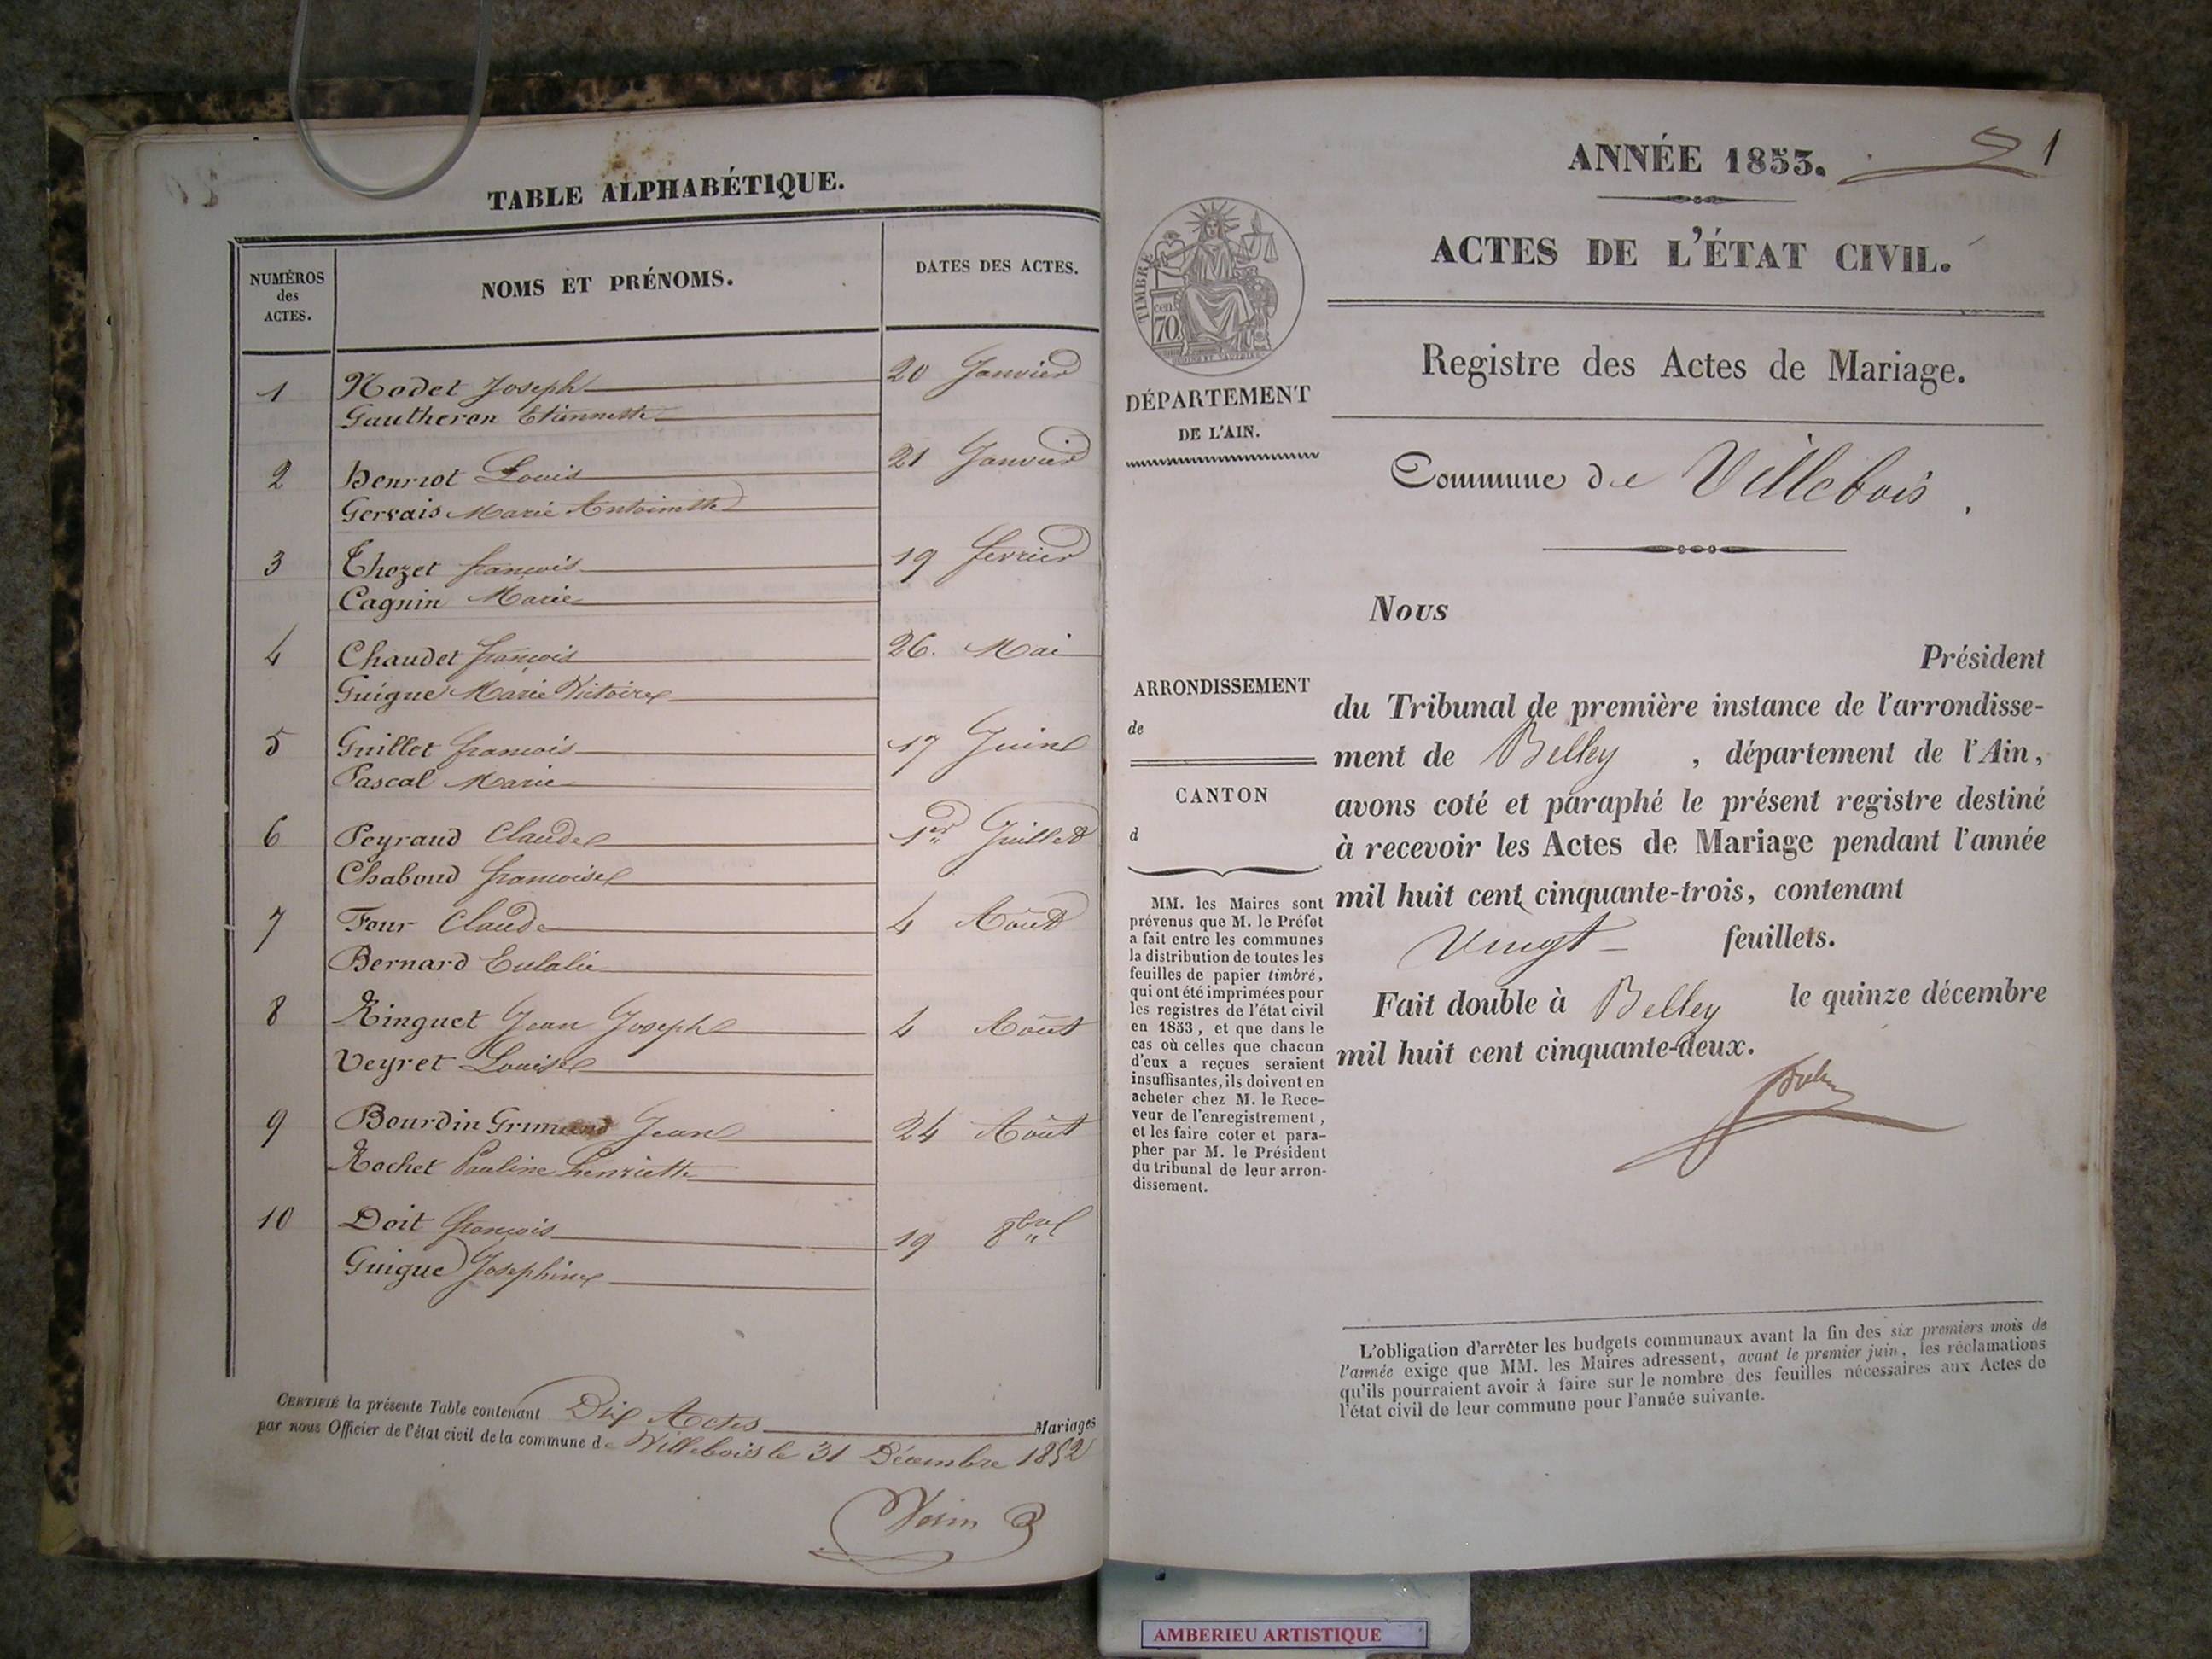 TABLE ALPHABÉTIQUE.
NUMÉROS
des
ACTES.
NOMS ET PRÉNOMS.
DATES DES ACTES.
1 Nodet Joseph 20 Janvier
Gautheron Etiennette
2 Henriot Louis 21 Janvier
Gervais Marie Antoinette
3 Thozet françois 19 fevrier
Cagnin Marie
4 Chaudet françois 26. Mai
Guigue Marie Victoire
5 Guillot françois 17 Juin
Pascal Marie
6 Peyraud Claude 1er Juillet
Chaboud françoise
7 Four Claude 4 Août
Bernard Eulalie
8 Ringuet Jean Joseph 4 Août
Veyret Louise
9 Bourdin Grimaud Jean 24 Août
Rochet Pauline henriette
10 Doit françois 19 8bre
Guigue Josephine
CERTIFIÉ la présente Table contenant Dix Actes Mariages
par nous Officier de l'état civil de la commune de Villebois le 31 Décembre 1852
1
ANNÉE 1853.
ACTES DE L'ÉTAT CIVIL.
TIMBRE
cen
70
DÉPARTEMENT
DE L'AIN.
Registre des Actes de Mariage.
Commune de Villebois.
ARRONDISSEMENT
de
CANTON
d
MM. les Maires sont
prévenus que M. le Préfet
a fait entre les communes
la distribution de toutes les
feuilles de papier timbré,
qui ont été imprimées pour
les registres de l'état civil
en 1853, et que dans le
cas où celles que chacun
d'eux a reçues seraient
insuffisantes, ils doivent en
acheter chez M. le Rece-
veur de l'enregistrement,
et les faire coter et para-
pher par M. le Président
du tribunal de leur arron-
dissement.
Nous
Président
du Tribunal de première instance de l'arrondisse-
ment de Belley, département de l'Ain,
avons coté et paraphé le présent registre destiné
à recevoir les Actes de Mariage pendant l'année
mil huit cent cinquante-trois, contenant
Vingt feuillets.
Fait double à Belley le quinze décembre
mil huit cent cinquante-deux.
L'obligation d'arrêter les budgets communaux avant la fin des six premiers mois de
l'année exige que MM. les Maires adressent, avant le premier juin, les réclamations
qu'ils pourraient avoir à faire sur le nombre des feuilles nécessaires aux Actes de
l'état civil de leur commune pour l'année suivante.
AMBERIEU ARTISTIQUE